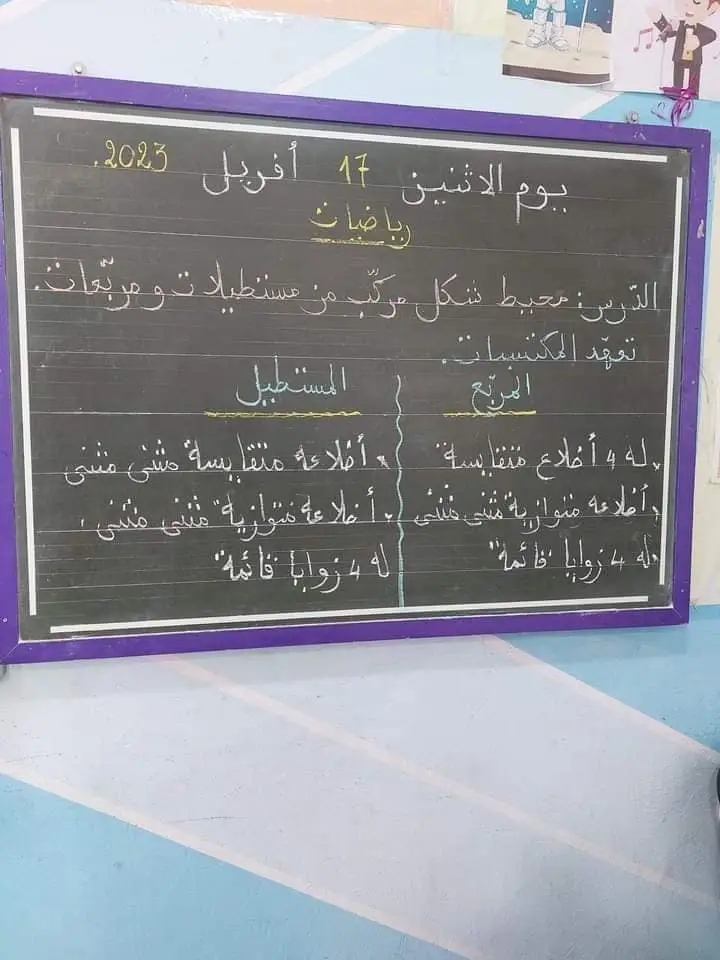 يوم الاثنين 17 أفريل 2023.
رياضيات
الدّرس: محيط شكل مركّب من مستطيلات ومربّعات.
تعهّد المكتسبات.
المربّع
له 4 أضلاع متقايسة
أضلاعه متوازية مثنى مثنى
له 4 زوايا قائمة
المستطيل
أضلاعه متقايسة مثنى مثنى
أضلاعه متوازية مثنى مثنى.
له 4 زوايا قائمة